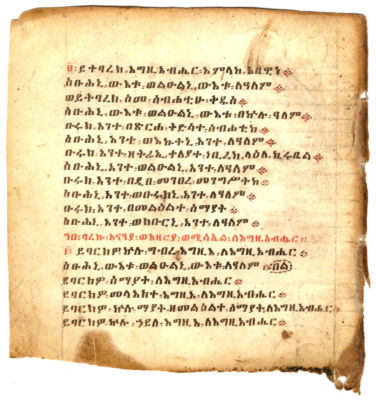 ይትባረክ፡እግዚአብሔር፡አምላከ፡አበዊነ
ስቡሕኒ፡ውእቱ፡ወልዑልኒ፡ውእቱ፡ለዓለም
ወይትባረክ፡ስመ፡ስብሐቲሁ፡ቅዱስ
ስቡሕኒ፡ውእቱ፡ወልዑልኒ፡ውእቱ፡በኵሉ፡ዓለም
ቡሩክ፡አንተ፡በጽርሐ፡ቅድሳተ፡ስብሐቲከ
ስቡሕኒ፡አንተ፡ወእኩትኒ፡አንተ፡ለዓለም
ቡሩክ፡አንተ፡ዘትሬኢ፡ቀላያተ፡ላዕለ፡ኪሩቤል
ስቡሕኒ፡አንተ፡ወልዑልኒ፡አንተ፡ለዓለም
ቡሩክ፡አንተ፡በዲበ፡መንበረ፡መንግሥትከ
ስቡሕኒ፡አንተ፡ወቡሩክኒ፡አንተ፡ለዓለም
ቡሩክ፡አንተ፡በመልዕልተ፡ሰማያት
ስቡሕኒ፡አንተ፡ወክቡርኒ፡አንተ፡ለዓለም
ባርኩ፡አናንያ፡ወአዛርያ፡ወሚሳኤል፡ለእግዚአብሔር
ይባርክዎ፡ኵሉ፡ግብረ፡እግዚእ፡ለእግዚአብሔር
ስቡሕኒ፡ውእቱ፡ወልዑልኒ፡ውእቱ፡ለዓለም በል
ይባርክዎ፡ሰማያት፡ለእግዚአብሔር
ይባርክዎ፡መላእክተ፡እግዚእ፡ለእግዚአብሔር
ይባርክዎ፡ኵሉ፡ማያት፡ዘመልዕልተ፡ሰማያት፡ለእግዚአብሔር
ይባርክዎ፡ኵሉ፡ኃይለ፡እግዚእ፡ለእግዚአብሔር